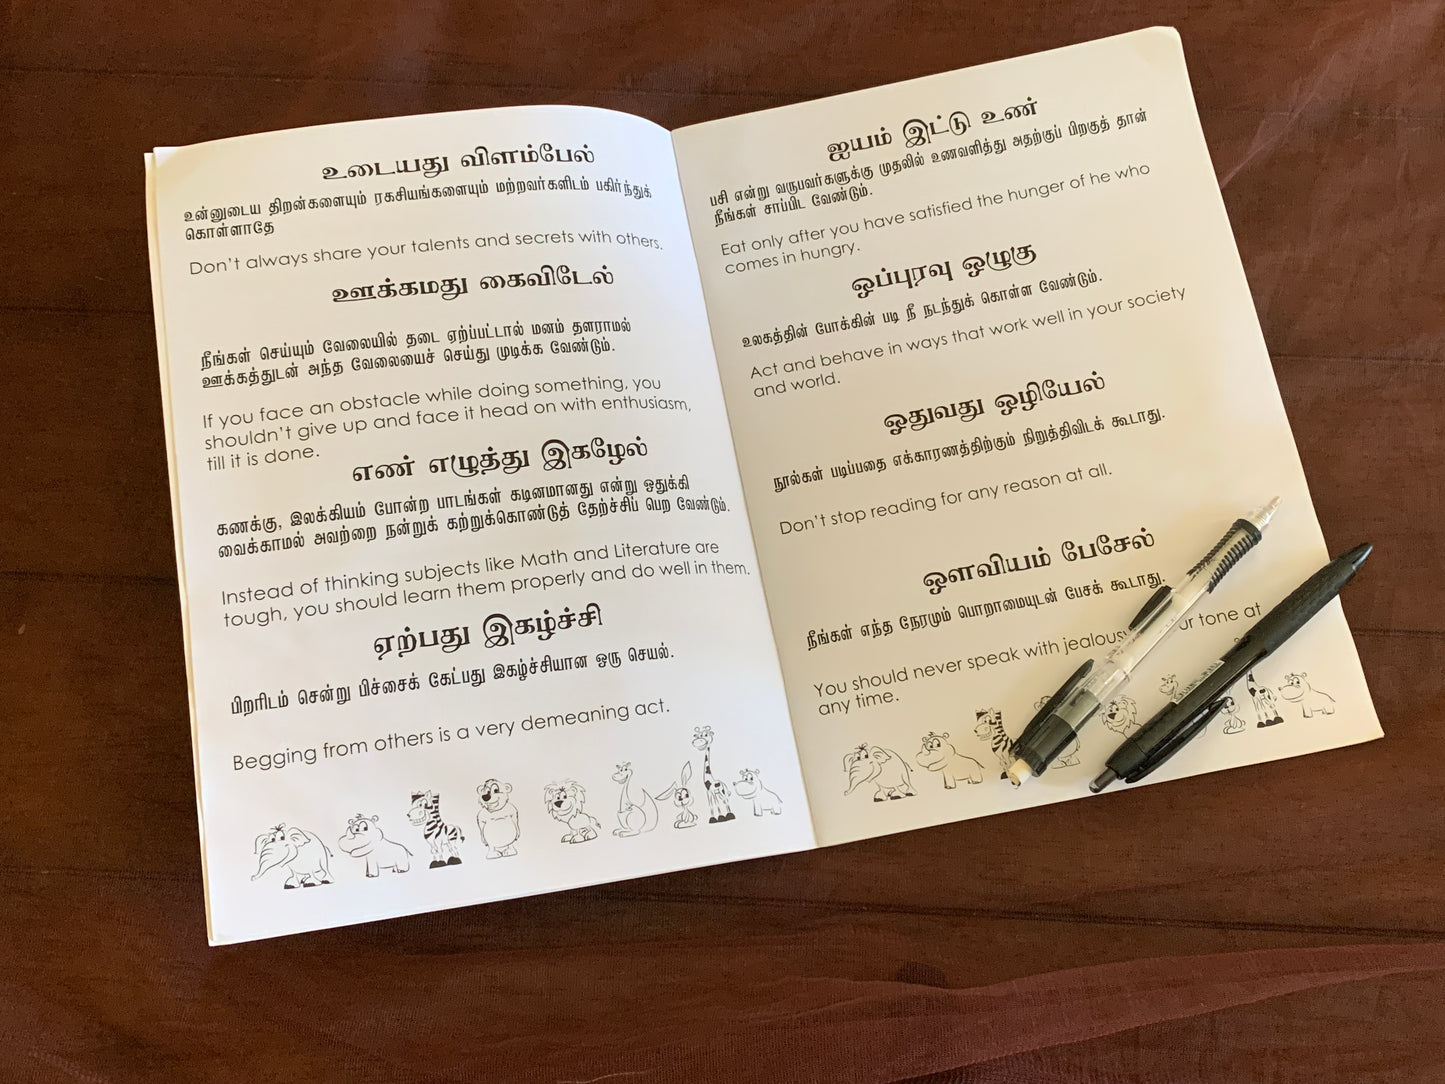 உடையது விளம்பேல்
உன்னுடைய திறன்களையும் ரகசியங்களையும் மற்றவர்களிடம் பகிர்ந்துக்
கொள்ளாதே
Don't always share your talents and secrets with others.
ஊக்கமது கைவிடேல்
நீங்கள் செய்யும் வேலையில் தடை ஏற்பட்டால் மனம் தளராமல்
ஊக்கத்துடன் அந்த வேலையைச் செய்து முடிக்க வேண்டும்.
If you face an obstacle while doing something, you
shouldn't give up and face it head on with enthusiasm,
till it is done.
எண் எழுத்து இகழேல்
கணக்கு, இலக்கியம் போன்ற பாடங்கள் கடினமானது என்று ஒதுக்கி
வைக்காமல் அவற்றை நன்றுக் கற்றுக்கொண்டுத் தேர்ச்சிப் பெற வேண்டும்.
Instead of thinking subjects like Math and Literature are
tough, you should learn them properly and do well in them.
ஏற்பது இகழ்ச்சி
பிறரிடம் சென்று பிச்சைக் கேட்பது இகழ்ச்சியான ஒரு செயல்.
Begging from others is a very demeaning act.
ஐயம் இட்டு உண்
பசி என்று வருபவர்களுக்கு முதலில் உணவளித்து அதற்குப் பிறகுத் தான்
நீங்கள் சாப்பிட வேண்டும்.
Eat only after you have satisfied the hunger of he who
comes in hungry.
ஒப்புரவு ஒழுகு
உலகத்தின் போக்கின் படி நீ நடந்துக் கொள்ள வேண்டும்.
Act and behave in ways that work well in your society
and world.
ஓதுவது ஒழியேல்
நூல்கள் படிப்பதை எக்காரணத்திற்கும் நிறுத்திவிடக் கூடாது.
Don't stop reading for any reason at all.
ஔவியம் பேசேல்
நீங்கள் எந்த நேரமும் பொறாமையுடன் பேசக் கூடாது.
You should never speak with jealousy ur tone at
any time.